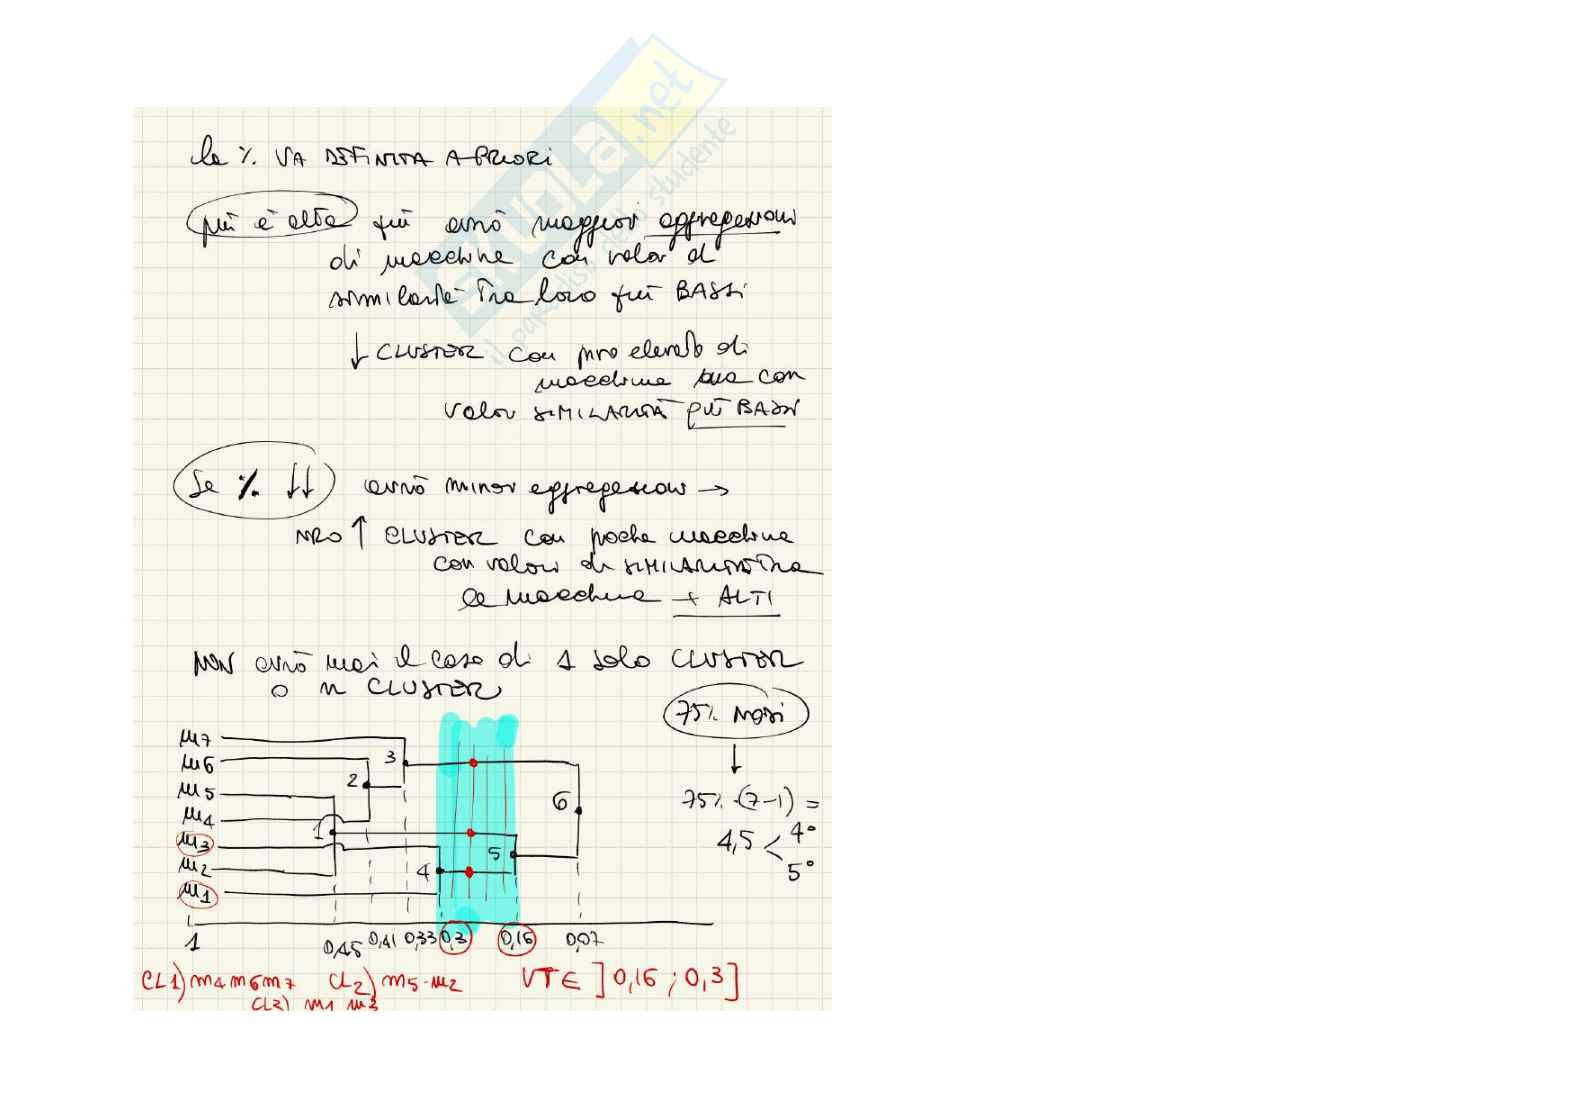 la % VA DEFINITA A PRIORI
più è alta più avrò maggiori aggregazioni
di macchine con valori di
similarità tra loro più BASSI
↓ CLUSTER con nro elevato di
macchine ma con
valori SIMILARITÀ più BASSI
Se % ↓↓ avrò minori aggregazioni →
NRO ↑ CLUSTER con poche macchine
con valori di SIMILARITÀ tra
le macchine + ALTI
NON avrò mai il caso di 1 solo CLUSTER
o n CLUSTER
75% nodi
75% · (7-1) =
4,5 < 4°
5°
m7
m6
m5
m4
m3
m2
m1
3
2
1
6
5
4
1 0,45 0,41 0,33 0,3 0,16 0,07
CL1) m4 m6 m7 CL2) m5 - m2 VT ∈ ]0,16 ; 0,3]
CL3) m1 m3
SKUOLA.net
il paradiso dello studente